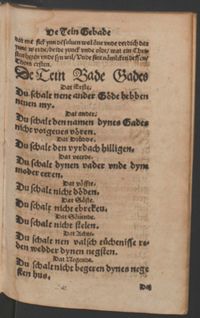 De Tein Gebade
De Tein Bade Gades
Dat Erste.
Du schalt nene ander Göde hebben
nenen my.
Dat ander.
Du schalt den namen dynes Gades
nicht vorgeues vören.
Dat Drüdde.
Du schalt den vyrdach hilligen.
Dat veerde.
Du schalt dynen vader vnde dyn
moder eeren.
Dat vöffte.
Du schalt nicht döden.
Dat Söste.
Du schalt nicht ebreken.
Dat Söuende.
Du schalt nicht stelen.
Dat Achte.
Du schalt nen valsch tüchenisse re-
den wedder dynen negsten.
Dat Negende.
Du schalt nicht begeren dynes nege
sten hus.
Dat